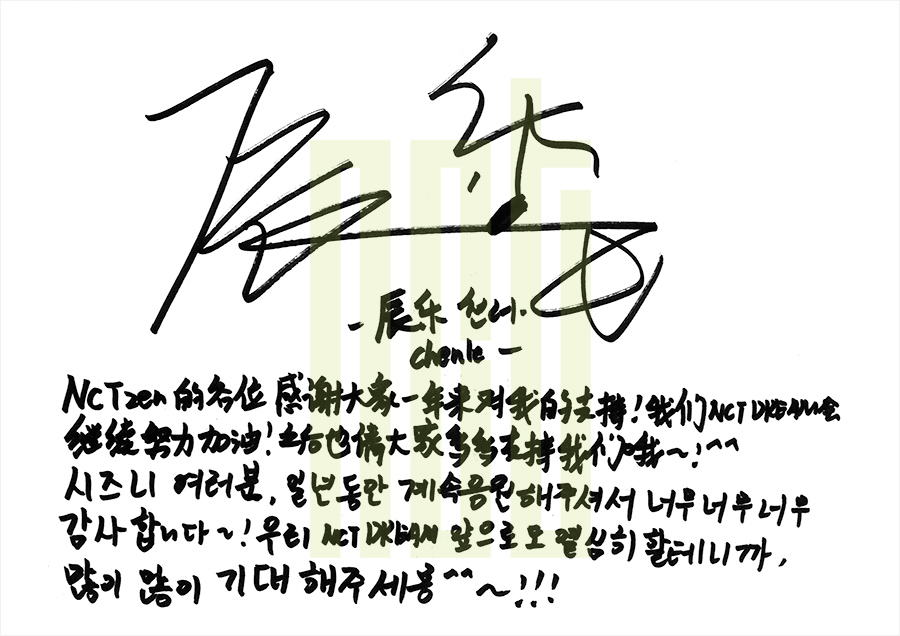 辰乐
- 辰乐 천러.
chenle -
NCTzen的各位 感谢大家一年来对我的支持！我们NCT DREAM会
继续努力加油！之后也请大家多多支持我们哦~！^^
시즈니 여러분, 일년동안 계속응원해주셔서 너무너무너무
감사합니다~! 우리 NCT DREAM 앞으로도 열심히 할테니까,
많이 많이 기대해주세용^^~!!!
nct